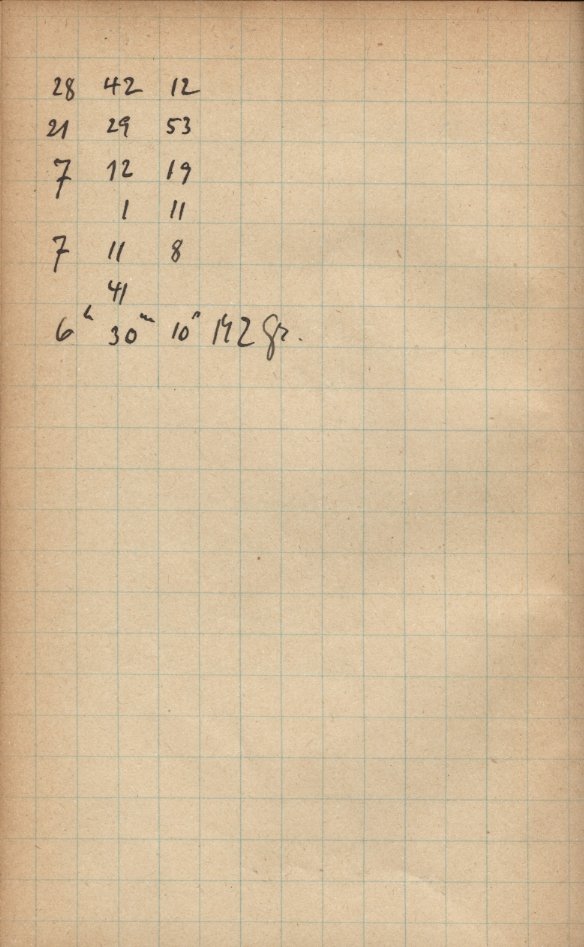 28 42 12
21 29 53
7 12 19
1 11
7 11 8
41
6h 30m 10s MZ Gr.